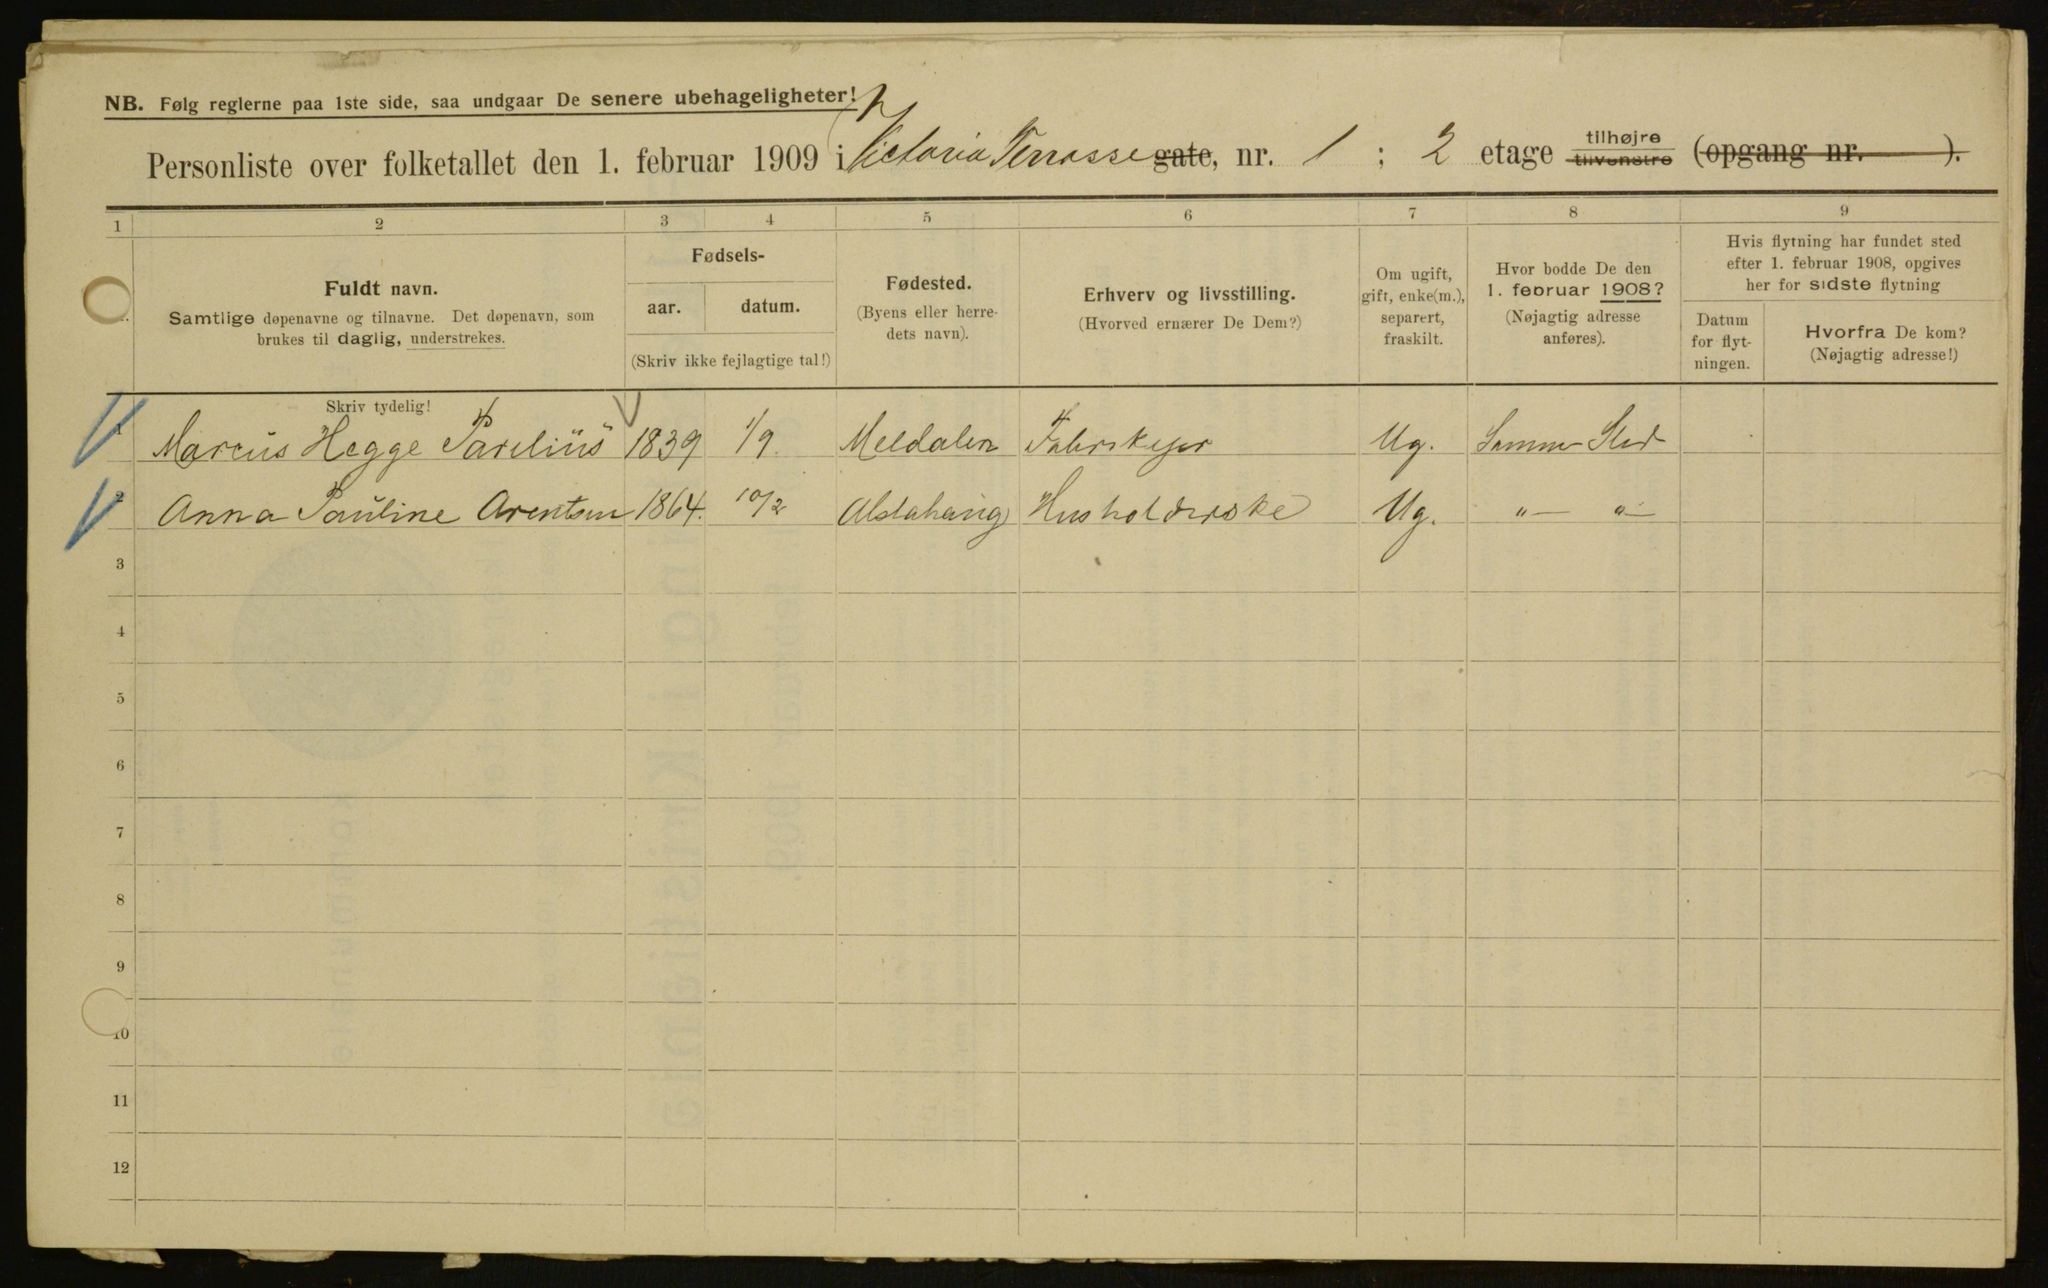 NB. Følg reglerne paa 1ste side, saa undgaar De senere ubehageligheter!
Personliste over folketallet den 1. februar 1909 i Victoria Terrasse gate, nr. 1 ; 2 etage tilhøjre tilvenstre (opgang nr. ).
1 2 3 4 5 6 7 8 9
Fuldt navn.
Samtlige døpenavne og tilnavne. Det døpenavn, som
brukes til daglig, understrekes.
Skriv tydelig!
Fødsels-
aar. datum.
(Skriv ikke fejlagtige tal!)
Fødested.
(Byens eller herre-
dets navn).
Erhverv og livsstilling.
(Hvorved ernærer De Dem?)
Om ugift,
gift, enke(m.),
separert,
fraskilt.
Hvor bodde De den
1. februar 1908?
(Nøjagtig adresse
anføres).
Hvis flytning har fundet sted
efter 1. februar 1908, opgives
her for sidste flytning
Datum
for flyt-
ningen.
Hvorfra De kom?
(Nøjagtig adresse!)
Marcus Hegge Parelius 1839 1/9. Meldalen Ug. Samme Sted
2 Anna Pauline Arentsen 1864. 10/2 Alstahaug Husholderske Ug. "— "—
3
4
5
6
7
8
9
10
11
12